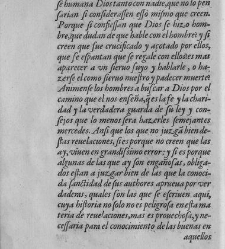 se humana Dios tanto con nadie, que no lo pen
sarian si considerassen esso mismo que creen.
Porque si confiessan que Dios se hizo hom-
bre, que dudan de que hable con el hombre? y si
creen que fue crucificado y açotado por ellos,
que se espantan que se regale con ellos? es mas
aparecer a un sieruo suyo y hablarle, o ha-
zerse el como sieruo nuestro y padecer muerte?
Animense los hombres a buscar a Dios por el
camino que el nos enseña, que es la fe y la chari-
dad y la verdadera guarda de su ley y con-
sejos que lo menos sera hazerles semejantes
mercedes. Ansi que los que no juzgã bien de-
stas reuelaciones, si es porque no creen que las
ay, viuen en grandissimo error: y si es porque
algunas de las que ay son engañosas, obliga-
dos estan a juzgar bien de las que la conoci-
da sanctidad de sus authores aprueua por ver
daderas, quales son las que se escriuen aqui,
cuya historia no solo no es peligrosa en esta ma
teria de reuelaciones, mas es prouechosa, y ne-
cessaria para el conocimiento de las buenas en
aquellos